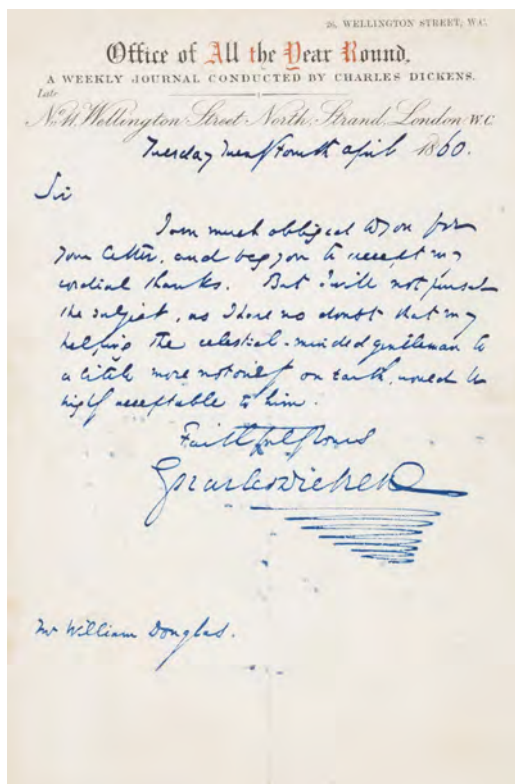 26, WELLINGTON STREET, W.C.
Office of All the Year Round,
A WEEKLY JOURNAL CONDUCTED BY CHARLES DICKENS.
Late
No. 11, Wellington Street North, Strand, London W.C
Tuesday Twenty Fourth April 1860.
Sir
I am much obliged to you for
your letter, and beg you to accept my
cordial thanks. But I will not pursue
the subject, as I have no doubt that my
helping the celestial-minded gentleman to
a little more notoriety on Earth, would be
highly acceptable to him.
Faithfully Yours
Charles Dickens
Mr William Douglas.